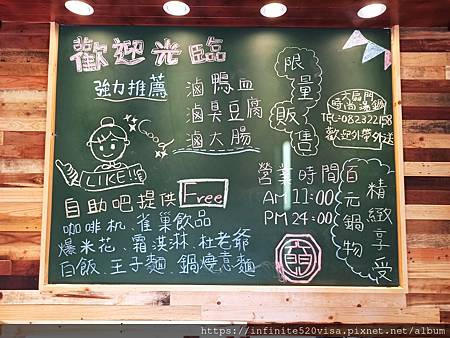 歡迎光臨
強力推薦
滷鴨血
滷臭豆腐
滷大腸
限量販售
大扂門
時尚湯鍋
TEL:082322158
歡迎外帶外送
LIKE!!
自助吧提供 Free
咖啡机、雀巢飲品
爆米花、霜淇淋、杜老爺
白飯、王子麵、鍋燒意麵
營業時間
AM 11:00
PM 24:00
百元鍋物
精緻享受
https://infinite520visa.pixnet.net/album